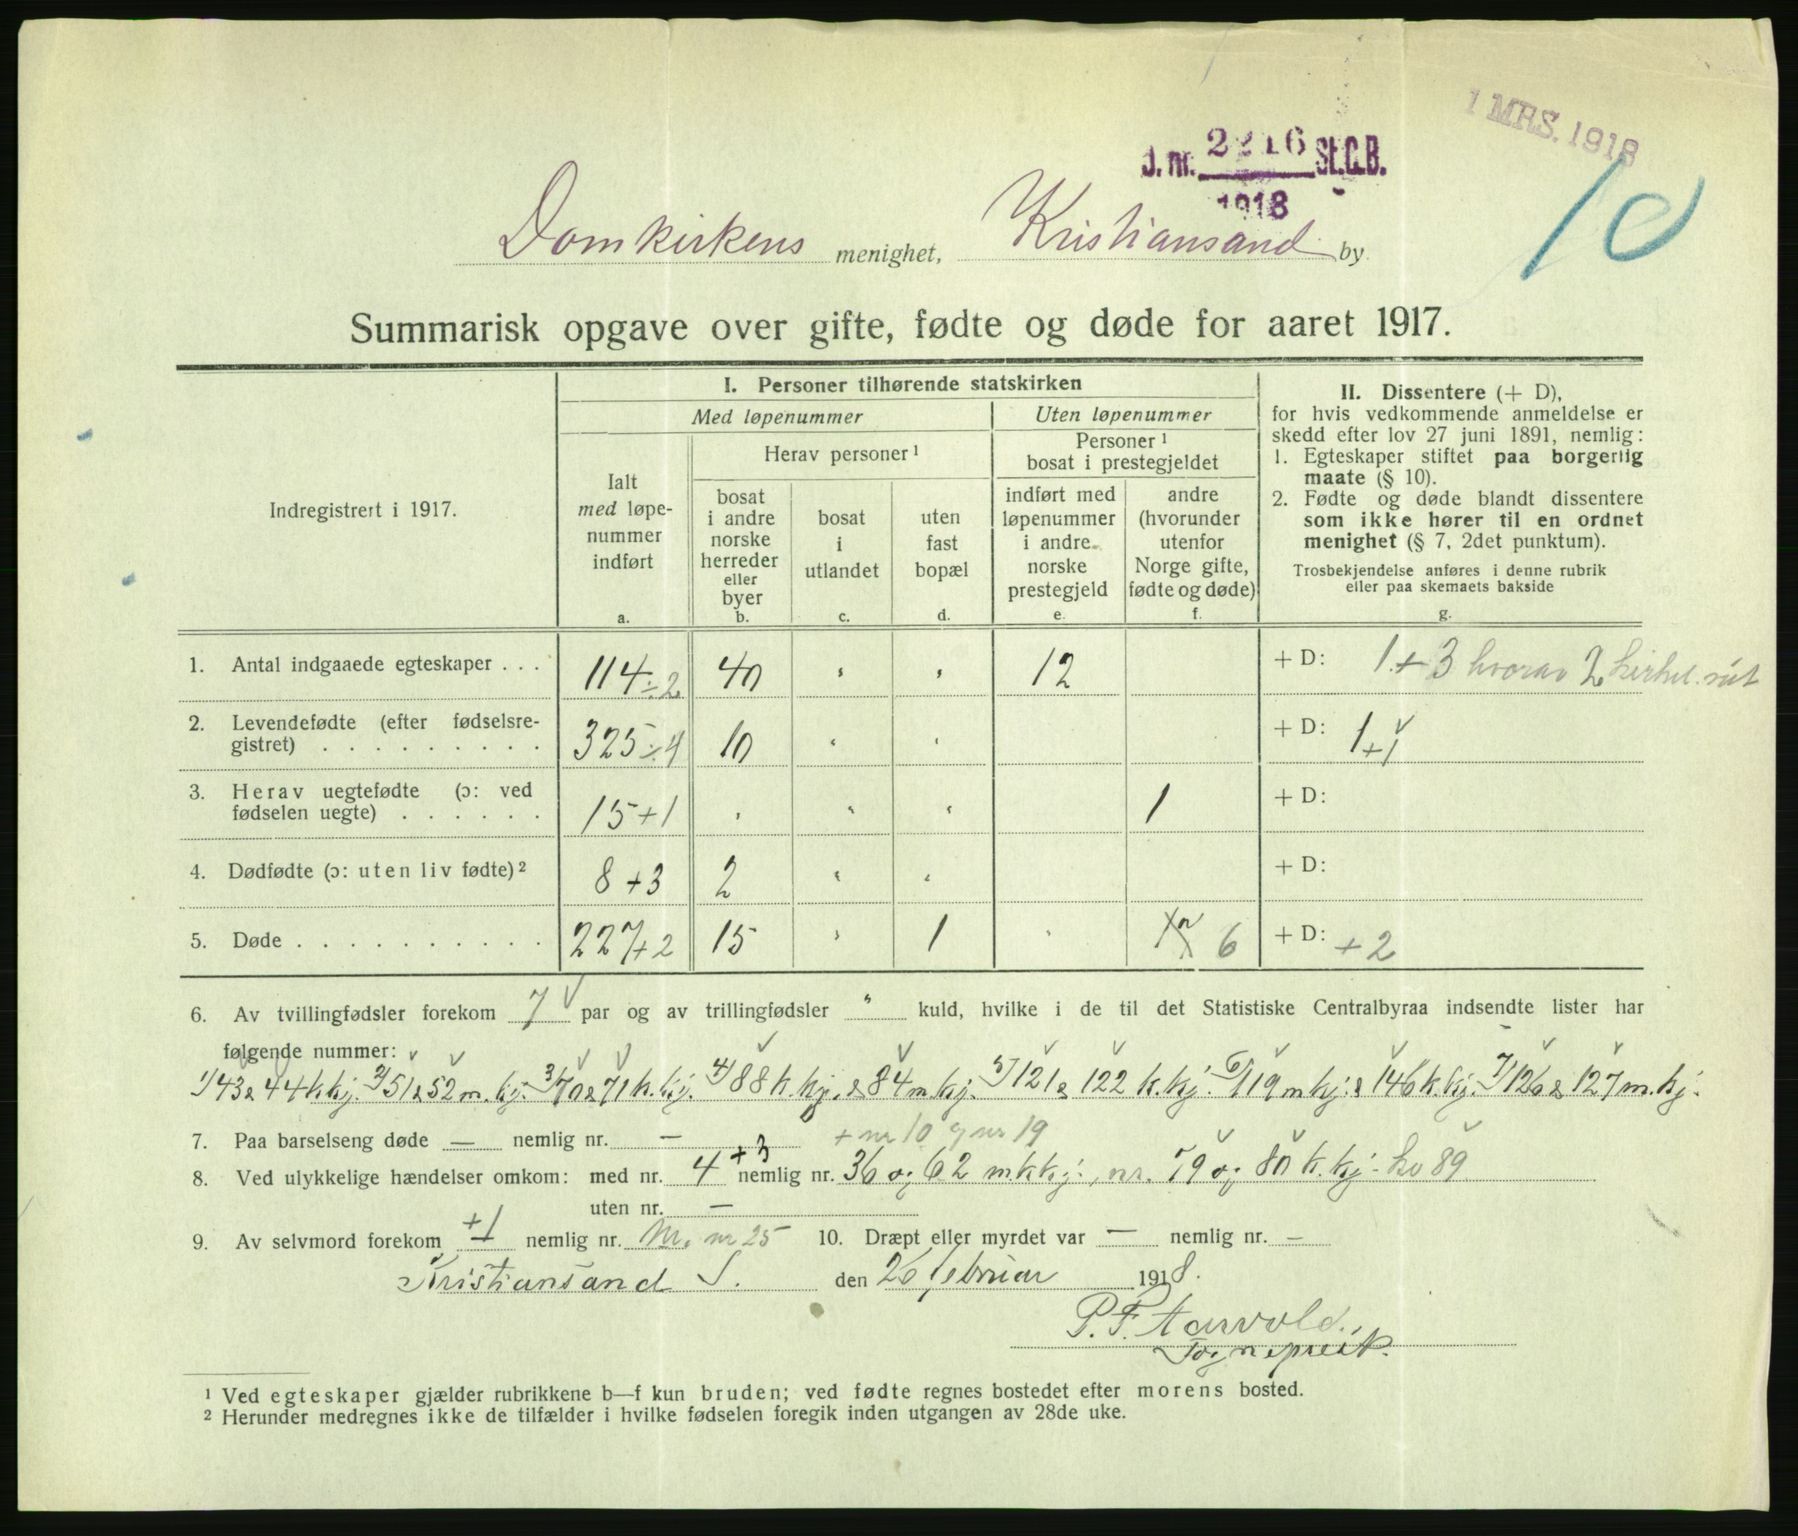 1 MRS. 1918
J. nr. 2216 St.C.B.
1918
10
Domkirkens menighet, Kristiansand by.
Summarisk opgave over gifte, fødte og døde for aaret 1917.
Indregistrert i 1917.
I. Personer tilhørende statskirken
Med løpenummer
Uten løpenummer
Ialt
med løpe-
nummer
indført
a.
Herav personer ¹
bosat
i andre
norske
herreder
eller
byer
b.
bosat
i
utlandet
c.
uten
fast
bopæl
d.
Personer ¹
bosat i prestegjeldet
indført med
løpenummer
i andre
norske
prestegjeld
e.
andre
(hvorunder
utenfor
Norge gifte,
fødte og døde)
f.
II. Dissentere (+ D),
for hvis vedkommende anmeldelse er
skedd efter lov 27 juni 1891, nemlig:
1. Egteskaper stiftet paa borgerlig
maate (§ 10).
2. Fødte og døde blandt dissentere
som ikke hører til en ordnet
menighet (§ 7, 2det punktum).
Trosbekjendelse anføres i denne rubrik
eller paa skemaets bakside
g.
1. Antal indgaaede egteskaper . . . 114 ÷ 2 40 " " 12 + D: 1 + 3 hvorav 2 kirkel.
2. Levendefødte (efter fødselsre-
gistret) . . . . . . . . . 325 ÷ 4 10 " " + D: 1 + 1
3. Herav uegtefødte (ɔ: ved
fødselen uegte) . . . . . . 15 + 1 " " " 1 + D:
4. Dødfødte (ɔ: uten liv fødte) ² 8 + 3 2 " " + D:
5. Døde . . . . . . . . . . 227 + 2 15 " 1 " 6 + D: + 2
6. Av tvillingfødsler forekom 7 par og av trillingfødsler " kuld, hvilke i de til det Statistiske Centralbyraa indsendte lister har
følgende nummer:
1/ 43 & 44 k.kj. 2/ 51 & 52 m.kj. 3/ 70 & 71 k.kj. 4/ 88 k.kj. & 84 m.kj. 5/ 121 & 122 k.kj. 6/ 119 m.kj. & 146 k.kj. 7/ 126 & 127 m.kj.
7. Paa barselseng døde — nemlig nr. — + nr 10 og nr 19
8. Ved ulykkelige hændelser omkom: med nr. 4 + 3 nemlig nr. 36 og 62 m.kkj., nr. 79 og 80 k.kj. 89
uten nr. —
9. Av selvmord forekom +1 nemlig nr. nr 25 10. Dræpt eller myrdet var — nemlig nr. —
Kristiansand S. den 26 februar 1918.
P. F. Aarvold.
Sogneprest.
¹ Ved egteskaper gjælder rubrikkene b—f kun bruden; ved fødte regnes bostedet efter morens bosted.
² Herunder medregnes ikke de tilfælder i hvilke fødselen foregik inden utgangen av 28de uke.